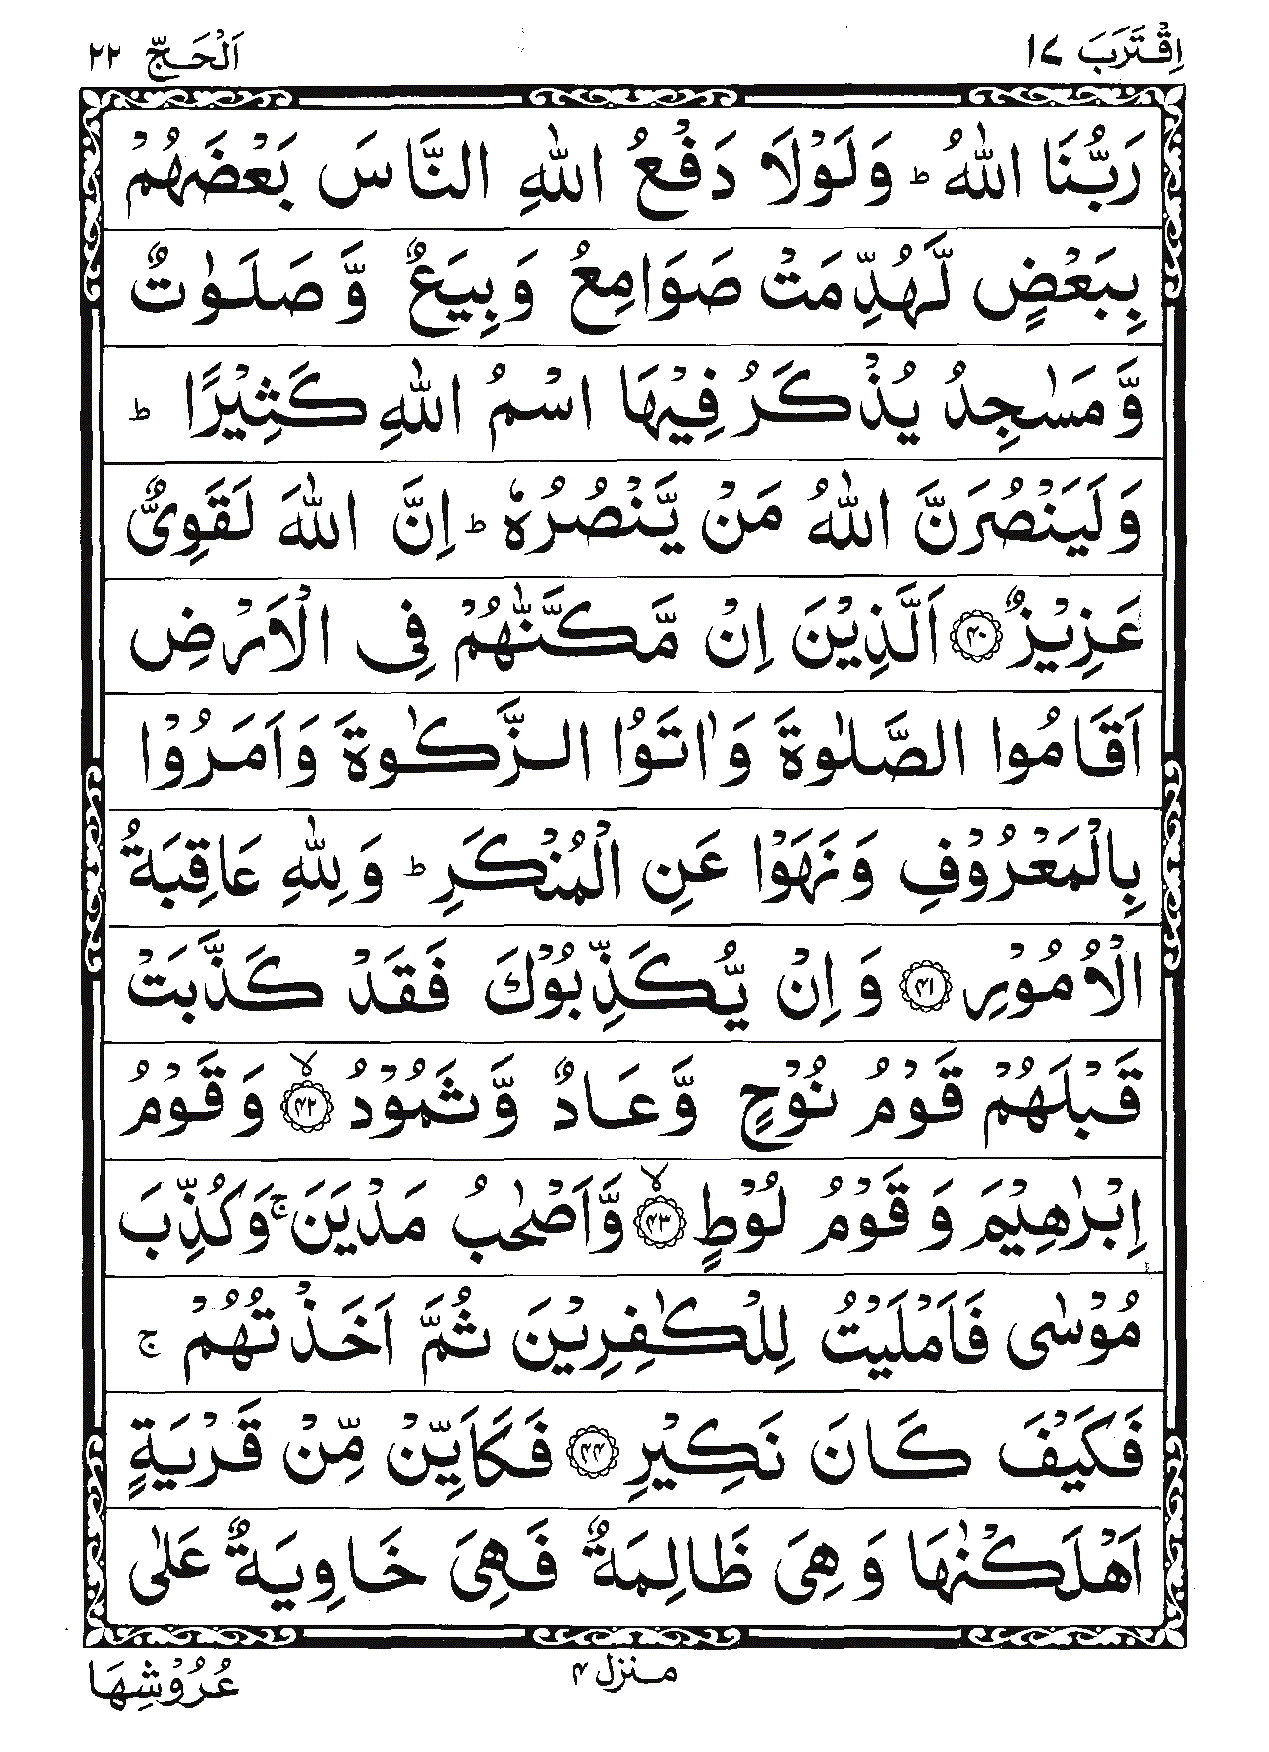 اِقْتَرَبَ ١٧
اَلْحَجّ ٢٢
رَبُّنَا اللّٰهُ ؕ وَلَوْلَا دَفْعُ اللّٰهِ النَّاسَ بَعْضَهُمْ
بِبَعْضٍ لَّهُدِّمَتْ صَوَامِعُ وَبِيَعٌ وَّصَلَوٰتٌ
وَّمَسٰجِدُ يُذْكَرُ فِيْهَا اسْمُ اللّٰهِ كَثِيْرًا ؕ
وَلَيَنْصُرَنَّ اللّٰهُ مَنْ يَّنْصُرُهٗ ؕ اِنَّ اللّٰهَ لَقَوِىٌّ
عَزِيْزٌ ﴿۴۰﴾ اَلَّذِيْنَ اِنْ مَّكَّنّٰهُمْ فِى الْاَرْضِ
اَقَامُوا الصَّلٰوةَ وَاٰتَوُا الزَّكٰوةَ وَاَمَرُوْا
بِالْمَعْرُوْفِ وَنَهَوْا عَنِ الْمُنْكَرِ ؕ وَلِلّٰهِ عَاقِبَةُ
الْاُمُوْرِ ﴿۴۱﴾ وَاِنْ يُّكَذِّبُوْكَ فَقَدْ كَذَّبَتْ
قَبْلَهُمْ قَوْمُ نُوْحٍ وَّعَادٌ وَّثَمُوْدُ ﴿۴۲﴾ۙ وَقَوْمُ
اِبْرٰهِيْمَ وَقَوْمُ لُوْطٍ ﴿۴۳﴾ۙ وَّاَصْحٰبُ مَدْيَنَ ۚ وَكُذِّبَ
مُوْسٰى فَاَمْلَيْتُ لِلْكٰفِرِيْنَ ثُمَّ اَخَذْتُهُمْ ۚ
فَكَيْفَ كَانَ نَكِيْرِ ﴿۴۴﴾ فَكَاَيِّنْ مِّنْ قَرْيَةٍ
اَهْلَكْنٰهَا وَهِىَ ظَالِمَةٌ فَهِىَ خَاوِيَةٌ عَلٰى
منزل ۴
عُرُوْشِهَا